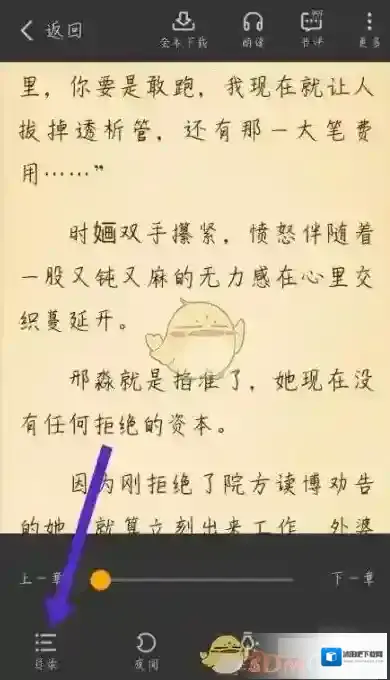 返回
全本下载
朗读
书评
更多
里，你要是敢跑，我现在就让人
拔掉透析管，还有那一大笔费
用……”
时婳双手攥紧，愤怒伴随着
一股又钝又麻的无力感在心里交
织蔓延开。
邢淼就是掐准了，她现在没
有任何拒绝的资本。
因为刚拒绝了院方读博劝告
的她，就算立刻出来工作，外婆
上一章
下一章
目录
夜间
3DM